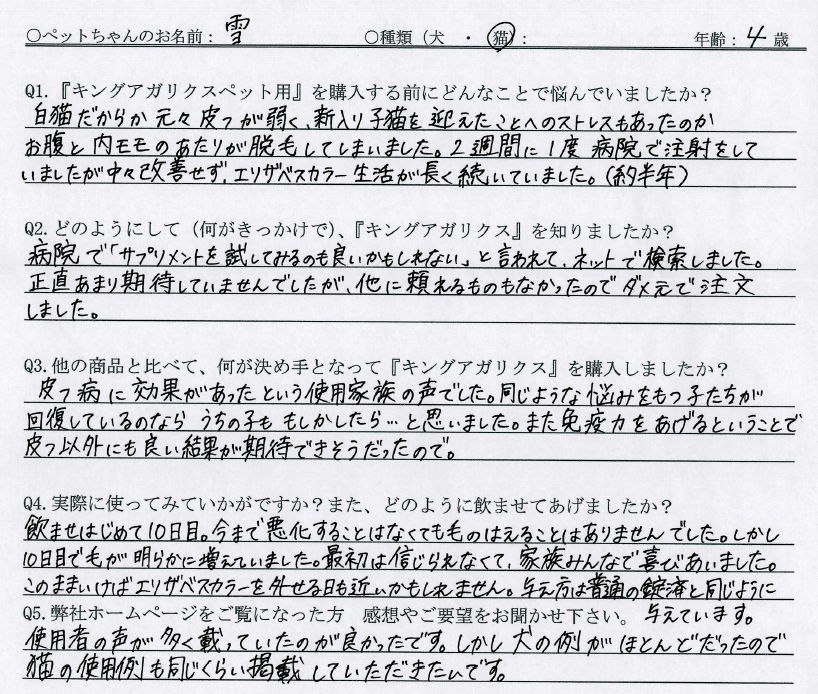 ○ペットちゃんのお名前：雪 ○種類（犬 ・ 猫）： 年齢：4歳
Q1.『キングアガリクスペット用』を購入する前にどんなことで悩んでいましたか？
白猫だからか元々皮フが弱く、新入り子猫を迎えたことへのストレスもあったのか
お腹と内モモのあたりが脱毛してしまいました。2週間に1度病院で注射をして
いましたが中々改善せず、エリザベスカラー生活が長く続いていました。（約半年）
Q2.どのようにして（何がきっかけで）、『キングアガリクス』を知りましたか？
病院で「サプリメントを試してみるのも良いかもしれない」と言われて、ネットで検索しました。
正直あまり期待していませんでしたが、他に頼れるものもなかったのでダメ元で注文
しました。
Q3.他の商品と比べて、何が決め手となって『キングアガリクス』を購入しましたか？
皮フ病に効果があったという使用家族の声でした。同じような悩みをもつ子たちが
回復しているのならうちの子ももしかしたら…と思いました。また免疫力をあげるということで
皮フ以外にも良い結果が期待できそうだったので。
Q4.実際に使ってみていかがですか？また、どのように飲ませてあげましたか？
飲ませはじめて10日目。今まで悪化することはなくても毛のはえることはありませんでした。しかし
10日目で毛が明らかに増えていました。最初は信じられなくて、家族みんなで喜びあいました。
このままいけばエリザベスカラーを外せる日も近いかもしれません。与え方は普通の錠済と同じように
与えています。
Q5.弊社ホームページをご覧になった方 感想やご要望をお聞かせ下さい。
使用者の声が多く載っていたのが良かったです。しかし犬の例がほとんどだったので
猫の使用例も同じくらい掲載していただきたいです。